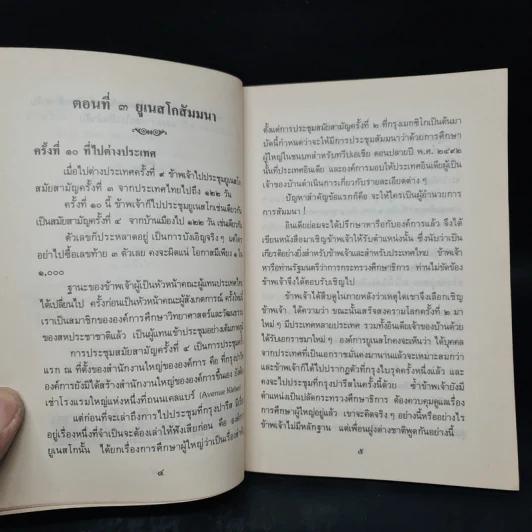 ตอนที่ ๓ ยูเนสโกสัมมนา
ครั้งที่ ๑๐ ที่ไปต่างประเทศ
เมื่อไปต่างประเทศครั้งที่ ๙ ข้าพเจ้าไปประชุมยูเนสโก
สมัยสามัญครั้งที่ ๓ จากประเทศไทยไปถึง ๑๒๒ วัน
ครั้งที่ ๑๐ นี้ ข้าพเจ้าก็ไปประชุมยูเนสโกเช่นเดียวกัน
เป็นสมัยสามัญครั้งที่ ๔ จากบ้านเมืองไป ๑๒๒ วัน เช่นเดียวกัน
ตัวเลขก็ประหลาดอยู่ เป็นการบังเอิญจริงๆ แต่ใคร
อย่าไปซื้อเลขท้าย ๓ ตัวเลย คงจะผิดแน่ โอกาสมีเพียง ๑ ใน
๑,๐๐๐
ฐานะของข้าพเจ้าผู้เป็นหัวหน้าคณะผู้แทนประเทศไทย
ได้เปลี่ยนไป ครั้งก่อนเป็นหัวหน้าคณะผู้สังเกตการณ์ ครั้งใหม่นี้
เราเป็นสมาชิกขององค์การศึกษาวิทยาศาสตร์และวัฒนธรรม
ของสหประชาชาติแล้ว เป็นผู้แทนเข้าประชุมอย่างเต็มภาคภูมิ
การประชุมสมัยสามัญครั้งที่ ๔ เป็นการประชุมครั้ง
แรก ณ ที่ตั้งของสำนักงานใหญ่ขององค์การ คือ ที่กรุงปารีส
องค์การยังมิได้สร้างสำนักงานใหญ่ขององค์การขึ้นเอง ยัง
เช่าโรงแรมใหญ่แห่งหนึ่งที่ถนนเคลแบร์ (Avenue Kleber)
แต่ก่อนที่จะเล่าถึงการไปประชุมที่กรุงปารีส มีเรื่อง
อยู่เรื่องหนึ่งที่จำเป็นจะต้องเล่าให้ฟังเสียก่อน คือ องค์การ
ยูเนสโกนั้น ได้ยกเรื่องการศึกษาผู้ใหญ่ว่าเป็นเรื่องสำคัญ
๔
ตั้งแต่การประชุมสมัยสามัญครั้งที่ ๒ ที่กรุงเมกซิโกเป็นต้นมา
บัดนี้กำหนดว่าจะให้มีการประชุมสัมมนาว่าด้วยการศึกษา
ผู้ใหญ่ในชนบทสำหรับทวีปเอเชีย ตอนปลายปี พ.ศ. ๒๔๙๒
นั้นที่ประเทศอินเดีย และองค์การมอบให้ประเทศอินเดียผู้เป็น
เจ้าของบ้านดำเนินการเกี่ยวกับรายละเอียดต่าง ๆ
ปัญหาสำคัญข้อแรกก็คือ จะให้ใครเป็นผู้อำนวยการ
การสัมมนา !
อินเดียย่อมจะได้ปรึกษาหารือกับองค์การแล้ว จึงได้
เขียนหนังสือมาเชิญข้าพเจ้าให้รับตำแหน่งนั้น ซึ่งนับว่าเป็น
เกียรติอย่างยิ่งสำหรับข้าพเจ้าและสำหรับประเทศไทย ข้าพเจ้า
หารือท่านรัฐมนตรีว่าการกระทรวงศึกษาธิการ ท่านไม่ขัดข้อง
ข้าพเจ้าจึงได้ตอบรับเชิญไป
ข้าพเจ้าได้สืบดูในภายหลังว่าเหตุใดเขาจึงเลือกเชิญ
ข้าพเจ้า ได้ความว่า ขณะนั้นเสร็จสงครามโลกครั้งที่ ๒ มา
ใหม่ ๆ มีประเทศหลายประเทศ รวมทั้งอินเดียเจ้าของบ้านด้วย
ได้รับเอกราชมาใหม่ ๆ องค์การยูเนสโกคงจะเห็นว่า ได้บุคคล
จากประเทศที่เป็นเอกราชมั่นคงมานานแล้วจะเหมาะสมกว่า
และข้าพเจ้าก็ได้ไปปรากฏตัวที่กรุงไบรุตครั้งหนึ่งแล้ว และ
คงจะไปประชุมที่กรุงปารีสในครั้งนี้ด้วย ซ้ำข้าพเจ้ายังมี
ตำแหน่งเป็นปลัดกระทรวงศึกษาธิการ ต้องควบคุมดูแลเรื่อง
การศึกษาผู้ใหญ่อยู่แล้ว เขาจะคิดจริง ๆ อย่างนี้หรืออย่างไร
ข้าพเจ้าไม่มีหลักฐาน แต่เพื่อนฝูงต่างชาติพูดกันอย่างนี้
๕